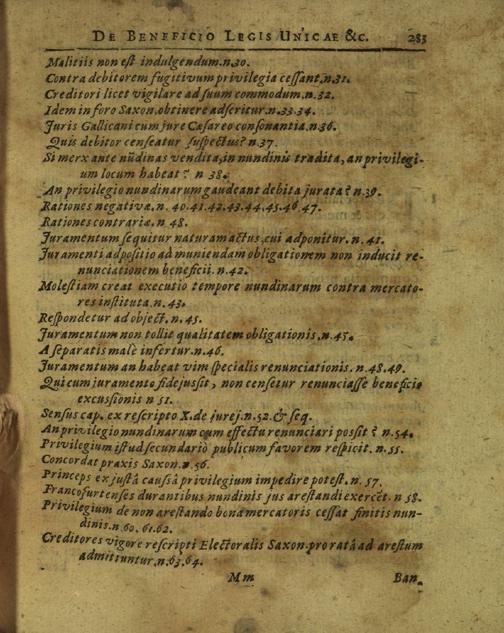 DE BENEFICIO LEGIS UNICAE &c. 283
Malitiis non est indulgendum. n. 30.
Contra debitorem fugitivum privilegia cessant. n. 31.
Creditori licet vigilare ad suum commodum. n. 32.
Idem in foro Saxon. obtinere adseritur. n. 33. 34.
Juris Gallicani cum jure Caesareo consonantia. n. 36.
Quis debitor censeatur suspectus? n. 37.
Si merx ante nundinas vendita, in nundinis tradita, an privilegi-
um locum habeat? n 38.
An privilegio nundinarum gaudeant debita jurata? n. 39.
Rationes negativae. n. 40. 41. 42. 43. 44. 45. 46. 47.
Rationes contrariae. n. 48.
Juramentum sequitur naturam actus, cui adponitur. n. 41.
Juramenti adpositio ad muniendam obligationem non inducit re-
nunciationem beneficii. n. 42.
Molestiam creat executio tempore nundinarum contra mercato-
res instituta. n. 43.
Respondetur ad object. n. 45.
Juramentum non tollit qualitatem obligationis. n. 45.
A separatis malè infertur. n. 46.
Juramentum an habeat vim specialis renunciationis. n. 48. 49.
Qui cum juramento fidejussit, non censetur renunciasse beneficio
excussionis n 51.
Sensus cap. ex rescripto X. de jurej. n. 52. & seq.
An privilegio nundinarum cum effectu renunciari possit? n. 54.
Privilegium istud secundariò publicum favorem respicit. n. 55.
Concordat praxis Saxon. n. 56.
Princeps ex justâ caussâ privilegium impedire potest. n. 57.
Francofurtenses durantibus nundinis jus arestandi exercēt. n 58.
Privilegium de non arestando bona mercatoris cessat finitis nun-
dinis. n. 60. 61. 62.
Creditores vigore rescripti Electoralis Saxon. pro ratâ ad arestum
admittuntur. n. 63. 64.
Mm Ban.